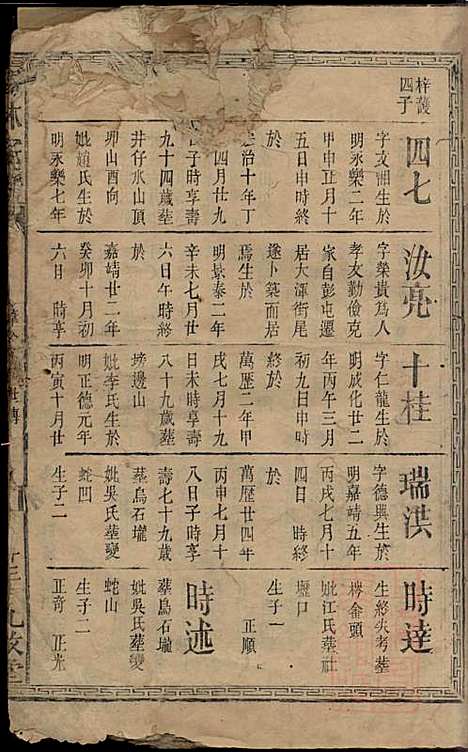 梓護
四子
四七
字文湘生於
明永樂二年
甲申五月十
五日申時終
於
治十年丁
四月廿九
日子時享壽
九十四歲葬
井仔水山頂
卯山酉向
妣趙氏生於
明永樂七年
汝亮
字榮貴爲人
孝友勤儉克
家自彭屯遷
居大渾街尾
遂卜築而居
焉生於
明景泰二年
辛未七月廿
六日午時終
於
嘉靖廿二年
癸卯十月初
六日 時享
十桂
字仁龍生於
明成化廿二
年丙午三月
初九日申時
終於
萬歷二年甲
戌七月初十
日未時享壽
八十九歲葬
塝邊山
妣李氏生於
明正德元年
丙寅十月廿
瑞洪
字德興生於
明嘉靖五年
丙戌七月十
四日 時終
於
萬歷廿四年
丙申七月十
八日子時享
壽七十九歲
葬烏石壠
妣吳氏葬變
蛇凹
生子二
時達
生終失考葬
樗金頭
妣江氏葬社
壢口
生子一
正順
時述
葬烏石壠
妣吳氏葬變
蛇山
生子二
正奇 正光